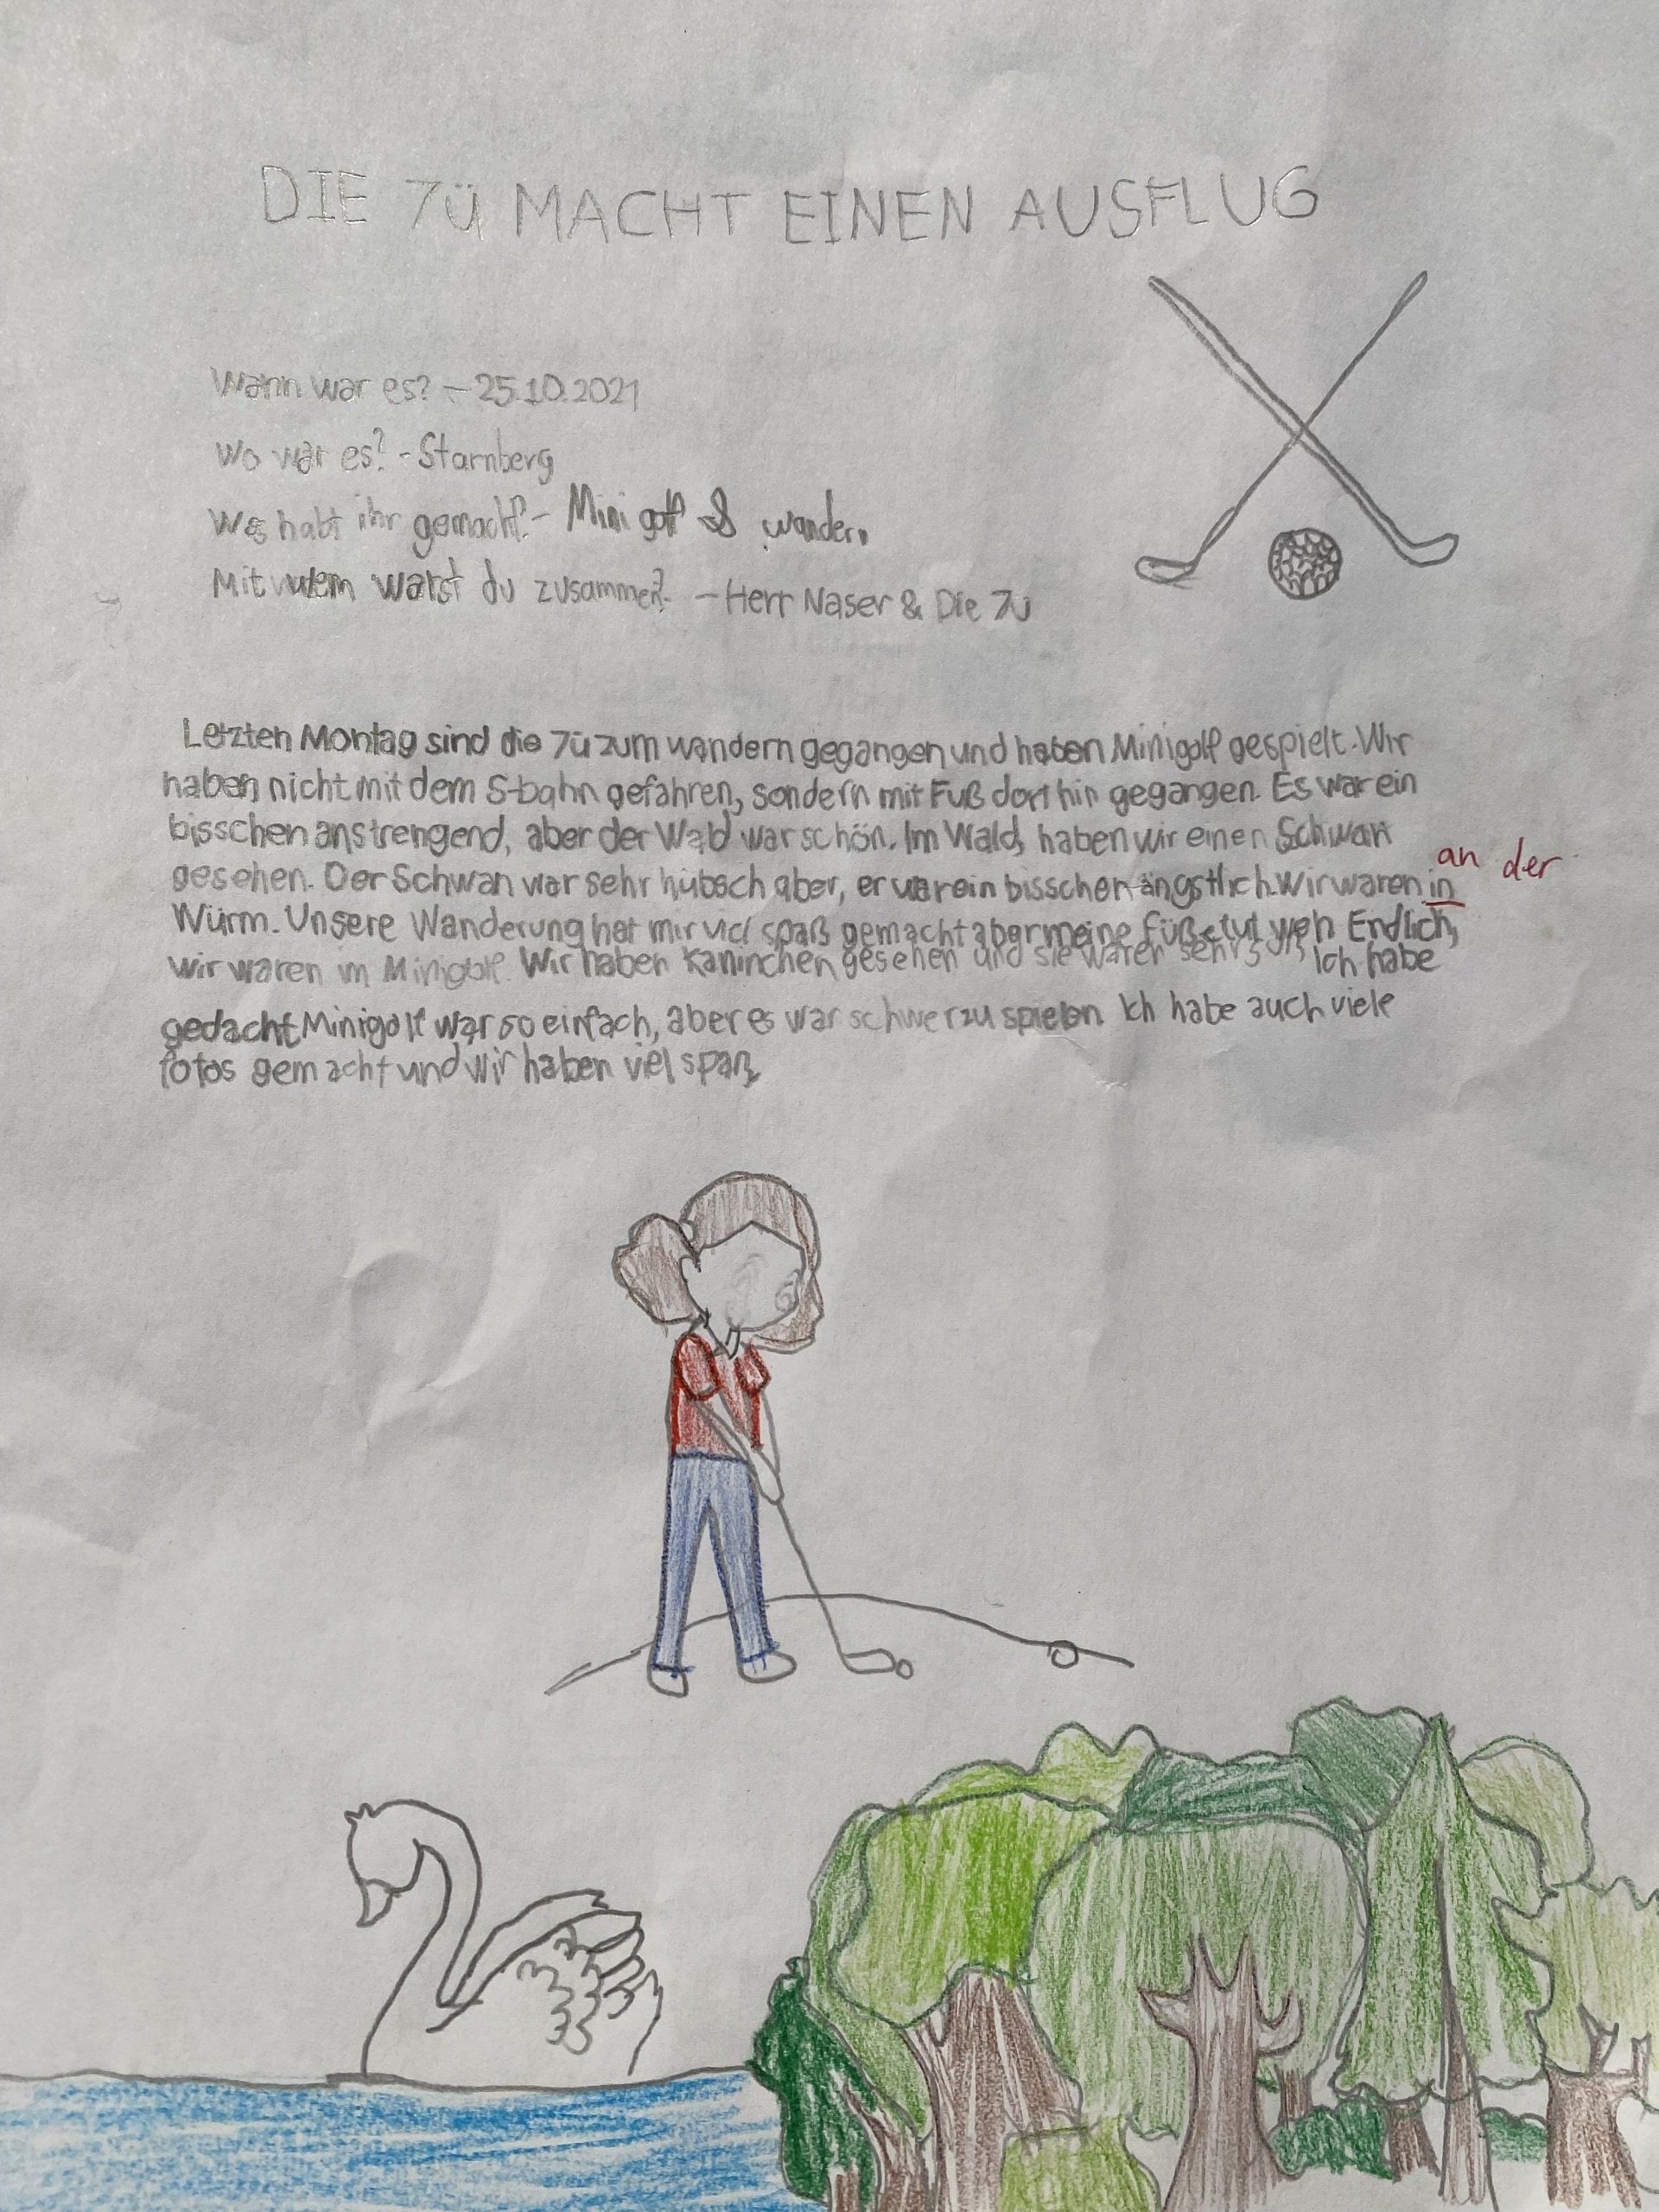 DIE 7ü MACHT EINEN AUSFLUG
Wann war es? - 25.10.2021
Wo war es? - Starnberg
Was habt ihr gemacht? - Minigolf & wandern
Mit wem warst du zusammen? - Herr Naser & Die 7ü
Letzten Montag sind die 7ü zum wandern gegangen und haben Minigolf gespielt. Wir
haben nicht mit dem S-bahn gefahren, sondern mit Fuß dort hin gegangen. Es war ein
bisschen anstrengend, aber der Wald war schön. Im Wald, haben wir einen Schwan
an der
gesehen. Der Schwan war sehr hübsch aber, er war ein bisschen ängstlich. Wir waren in
Würm. Unsere Wanderung hat mir viel spaß gemacht aber meine Füße tut weh. Endlich,
wir waren in Minigolf. Wir haben Kaninchen gesehen und sie waren sehr süß, Ich habe
gedacht Minigolf war so einfach, aber es war schwer zu spielen. Ich habe auch viele
fotos gemacht und wir haben viel spaß.